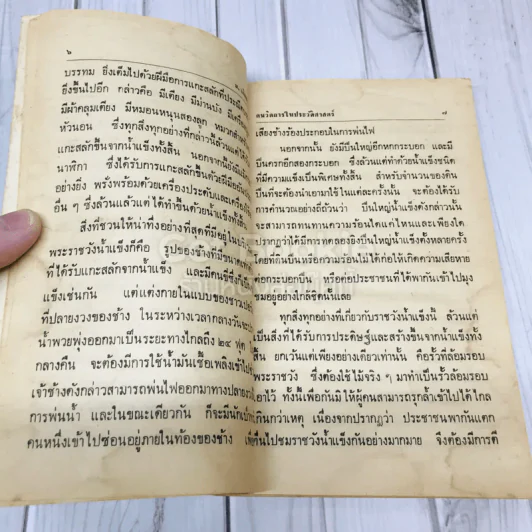 ๖
บรรทม ยิ่งเต็มไปด้วยฝีมือการแกะสลักที่ประณีต
ยิ่งขึ้นไปอีก กล่าวคือ มีเตียง มีม่านบัง มีเครื่อง
มีผ้าคลุมเตียง มีหมอนหนุนสองลูก หมวกสำหรับ
หัวนอน ซึ่งทุกสิ่งทุกอย่างที่กล่าวนี้ล้วนแต่ได้
แกะสลักขึ้นจากน้ำแข็งทั้งสิ้น นอกจากนี้ยังมี
นาฬิกา ซึ่งได้รับการแกะสลักขึ้นด้วยฝีมืออัน
อย่างยิ่ง พรั่งพร้อมด้วยเครื่องประดับและเครื่อง
อื่น ๆ ซึ่งล้วนแล้วแต่ได้ทำขึ้นด้วยน้ำแข็งทั้ง
สิ่งที่ชวนให้น่าทึ่งอย่างที่สุดที่มีอยู่ใน
พระราชวังน้ำแข็งก็คือ รูปของช้างที่มีขนาด
ที่ได้รับแกะสลักจากน้ำแข็ง และมีคนขี่ซึ่ง
แข็งเช่นกัน แต่แต่งกายในแบบของชาวเปอร์
ที่ปลายงวงของช้าง ในระหว่างเวลากลางวันจะ
น้ำพวยพุ่งออกมาเป็นระยะทางไกลถึง ๒๔ ฟุต
กลางคืน จะต้องมีการใช้น้ำมันเชื้อเพลิงเข้าไป
เจ้าช้างดังกล่าวสามารถพ่นไฟออกมาทางปลายงวง
การพ่นน้ำ และในขณะเดียวกัน ก็จะมีนักเป่า
คนหนึ่งเข้าไปซ่อนอยู่ภายในท้องของช้าง เพื่อ
คนวิตถารในประวัติศาสตร์ ๗
เสียงช้างร้องประกอบในการพ่นไฟ
นอกจากนั้น ยังมีปืนใหญ่อีกหกกระบอก และมี
ปืนครกอีกสองกระบอก ซึ่งล้วนแต่ทำด้วยน้ำแข็งชนิด
ที่มีความแข็งเป็นพิเศษทั้งสิ้น สำหรับจำนวนของดิน
ปืนที่จะต้องนำเอามาใช้ในแต่ละครั้งนั้น จะต้องได้รับ
การคำนวณอย่างถี่ถ้วนว่า ปืนใหญ่น้ำแข็งดังกล่าวนั้น
จะสามารถทนทานความร้อนได้แค่ไหนและเพียงใด
ปรากฏว่าได้มีการทดลองยิงปืนใหญ่น้ำแข็งทั้งหลายครั้ง
โดยที่ดินปืนหรือความร้อนไม่ได้ก่อให้เกิดความเสียหาย
ต่อกระบอกปืน หรือต่อประชาชนที่ได้พากันเข้าไปมุง
ชมอยู่อย่างใกล้ชิดนั้นเลย
ทุกสิ่งทุกอย่างที่เกี่ยวกับราชวังน้ำแข็งนี้ ล้วนแต่
เป็นสิ่งที่ได้รับการประดิษฐ์และสร้างขึ้นจากน้ำแข็งทั้ง
สิ้น ยกเว้นแต่เพียงอย่างเดียวเท่านั้น คือรั้วที่ล้อมรอบ
พระราชวัง ซึ่งต้องใช้ไม้จริง ๆ มาทำเป็นรั้วล้อมรอบ
เอาไว้ ทั้งนี้เพื่อกันมิให้ผู้คนสามารถรุกล้ำเข้าไปได้ไกล้
เกินกว่าเหตุ เนื่องจากปรากฏว่า ประชาชนพากันแตก
ตื่นไปชมราชวังน้ำแข็งกันอย่างมากมาย จึงต้องมีการตี